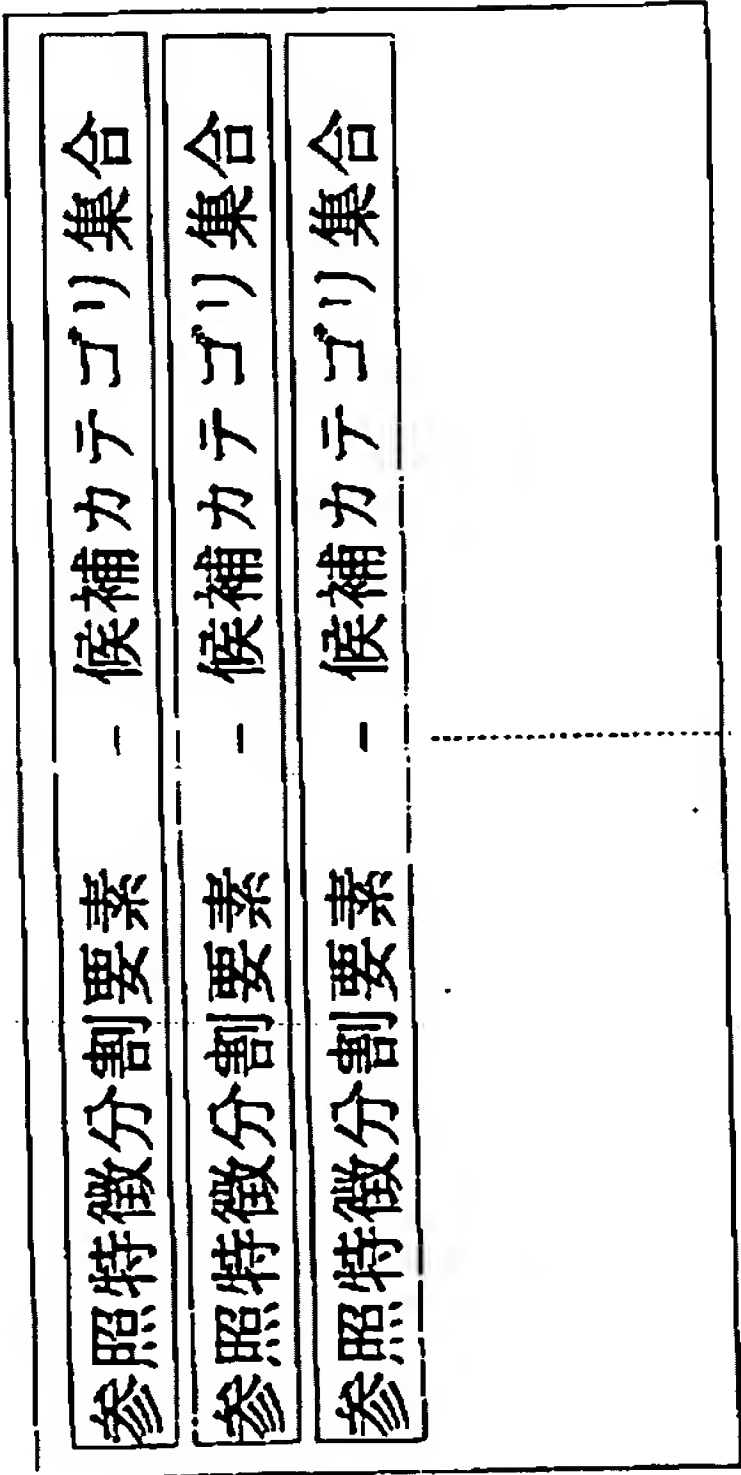 参照特徴分割要素 － 候補カテゴリ集合
参照特徴分割要素 － 候補カテゴリ集合
参照特徴分割要素 － 候補カテゴリ集合